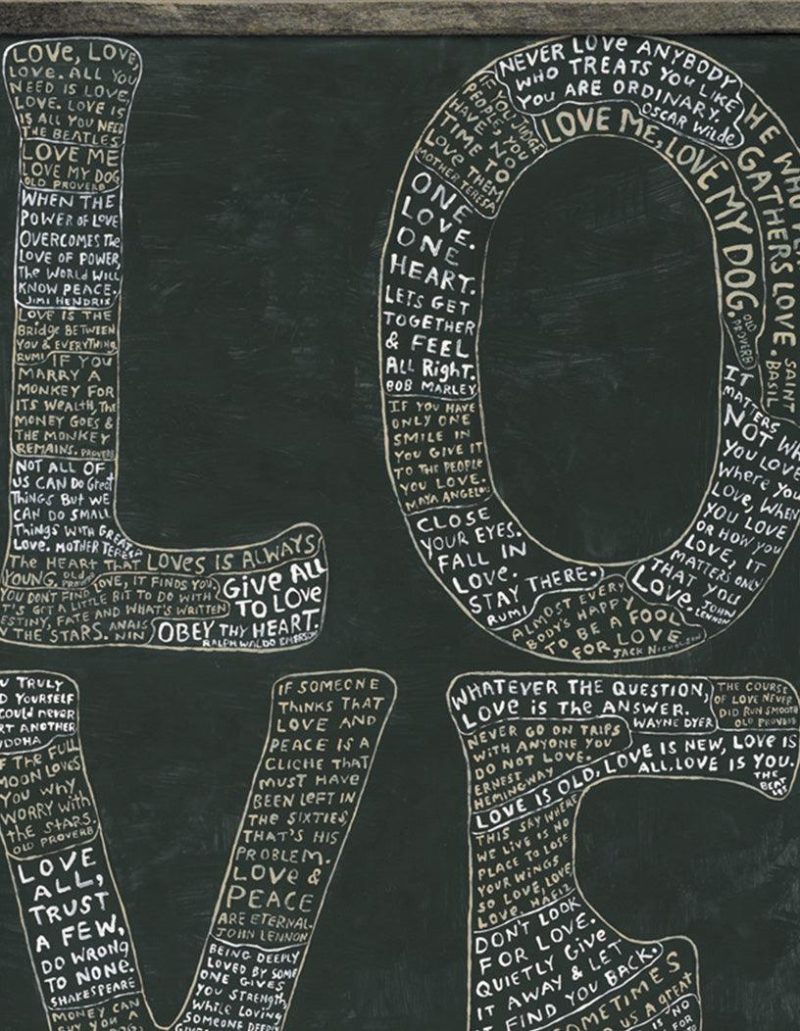 LOVE, LOVE,
LOVE. ALL YOU
NEED IS LOVE,
LOVE. LOVE IS
IS ALL YOU NEED
THE BEATLES
LOVE ME
LOVE MY DOG
OLD PROVERB
WHEN THE
POWER OF LOVE
OVERCOMES THE
LOVE OF POWER,
The WORLD WILL
KNOW PEACE.
JIMI HENDRIX
LOVE IS THE
BRIDGE BETWEEN
YOU & EVERYTHING.
RUMI
IF YOU
MARRY A
MONKEY FOR
ITS WEALTH, The
MONEY GOES &
THE MONKEY
REMAINS. PROVERB
NOT ALL OF
US CAN DO Great
THINGS BUT WE
CAN DO SMALL
THINGS WITH GREATER
LOVE. MOTHER TERESA
THE HEART THAT LOVES IS ALWAYS
YOUNG. OLD PROVERB
LOVE, IT FINDS YOU
YOU DON'T FIND
T'S GOT A LITTLE BIT TO DO WITH
ESTINY, FATE AND WHAT'S WRITTEN
THE STARS. ANAIS
NIN
GIVE ALL
TO LOVE
OBEY THY HEART.
RALPH WALDO EMERSON
NEVER LOVE ANYBODY
WHO TREATS YOU LIKE
YOU ARE ORDINARY.
OSCAR WILDE
IF YOU JUDGE
PEOPLE, YOU
HAVE NO
TIME TO
LOVE THEM
MOTHER TERESA
LOVE ME, LOVE MY DOG.
OLD
PROVERB
HE WHO
GATHERS LOVE.
SAINT
BASIL
ONE
LOVE.
ONE
HEART.
LETS GET
TOGETHER
& FEEL
ALL RIGHT.
BOB MARLEY
IF YOU HAVE
ONLY ONE
SMILE IN
YOU GIVE IT
TO THE PEOPLE
YOU LOVE.
MAYA ANGELOU
CLOSE
YOUR EYES.
FALL IN
LOVE.
STAY THERE.
RUMI
ALMOST EVERY
BODY'S HAPPY
TO BE A FOOL
FOR LOVE
JACK NICHOLSON
IT
MATTERS
NOT WH
YOU LOVE
WHERE YOU
LOVE, WHEN
YOU LOVE
OR HOW YOU
LOVE, IT
MATTERS ONLY
THAT YOU
LOVE.
JOHN
LENNON
U TRULY
D YOURSELF
COULD NEVER
RT ANOTHER
UDDHA
F THE FULL
MOON LOVES
YOU WHY
WORRY WITH
the STARS.
OLD PROVERB
LOVE
ALL,
TRUST
A FEW,
DO WRONG
TO NONE.
SHAKESPEARE
MONEY CAN
BUY YOU A
IF SOMEONE
THINKS THAT
LOVE AND
PEACE IS A
CLICHE THAT
MUST HAVE
BEEN LEFT IN
THE SIXTIES,
THAT'S HIS
PROBLEM.
LOVE &
PEACE
ARE ETERNAL.
JOHN LENNON
BEING DEEPLY
LOVED BY SOME
ONE GIVES
YOU STRENGTH
WHILE LOVING
SOMEONE DEEPLY
WHATEVER THE QUESTION,
LOVE IS THE ANSWER.
WAYNE DYER
THE COURSE
OF LOVE NEVER
DID RUN SMOOTH
OLD PROVERB
NEVER GO ON TRIPS
WITH ANYONE YOU
DO NOT LOVE.
ERNEST
HEMINGWAY
LOVE IS OLD, LOVE IS NEW, LOVE IS
ALL. LOVE IS YOU.
THE
BEAT
LES
THIS SKY WHERE
WE LIVE IS NO
PLACE TO LOSE
YOUR WINGS
SO LOVE, LOVE
LOVE. HAFIZ
DON'T LOOK
FOR LOVE.
QUIETLY GIVE
IT AWAY & LET
IT FIND YOU BACK.
SOMETIMES
US A GREAT
NO
FOR